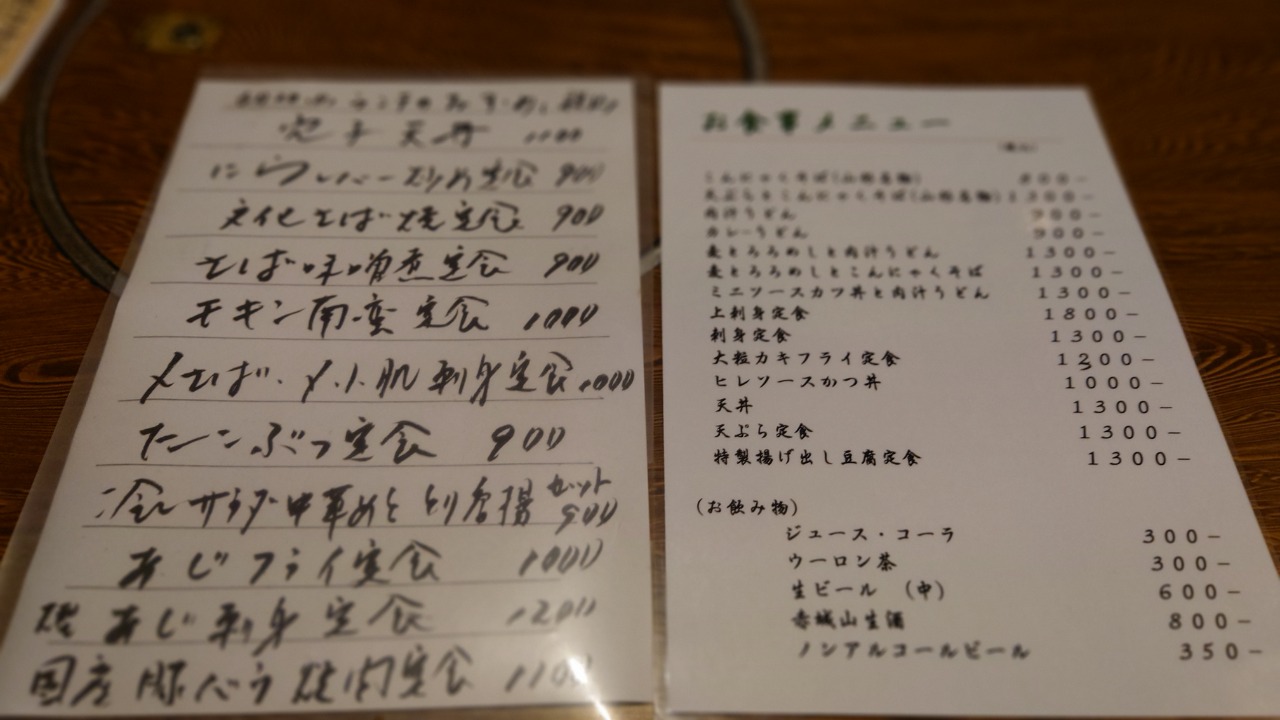 天丼 1100
にらレバー炒め定食 900
文化さば焼定食 900
さば味噌煮定食 900
チキン南蛮定食 1000
〆さば・〆小肌刺身定食 1000
たこぶつ定食 900
冷しサラダ中華めんと とり唐揚セット 900
あじフライ定食 1000
あじ刺身定食 1200
国産豚バラ焼肉定食 1100
お食事メニュー
こんにゃくそば(山形名物) 800-
天ぷらとこんにゃくそば(山形名物) 1300-
肉汁うどん 900-
カレーうどん 900-
麦とろろめしと肉汁うどん 1300-
麦とろろめしとこんにゃくそば 1300-
ミニソースカツ丼と肉汁うどん 1300-
上刺身定食 1800-
刺身定食 1300-
大粒カキフライ定食 1300-
ヒレソースかつ丼 1000-
天丼 1300-
天ぷら定食 1300-
特製揚げ出し豆腐定食 1300-
(お飲み物)
ジュース・コーラ 300-
ウーロン茶 300-
生ビール (中) 600-
赤城山生酒 800-
ノンアルコールビール 350-